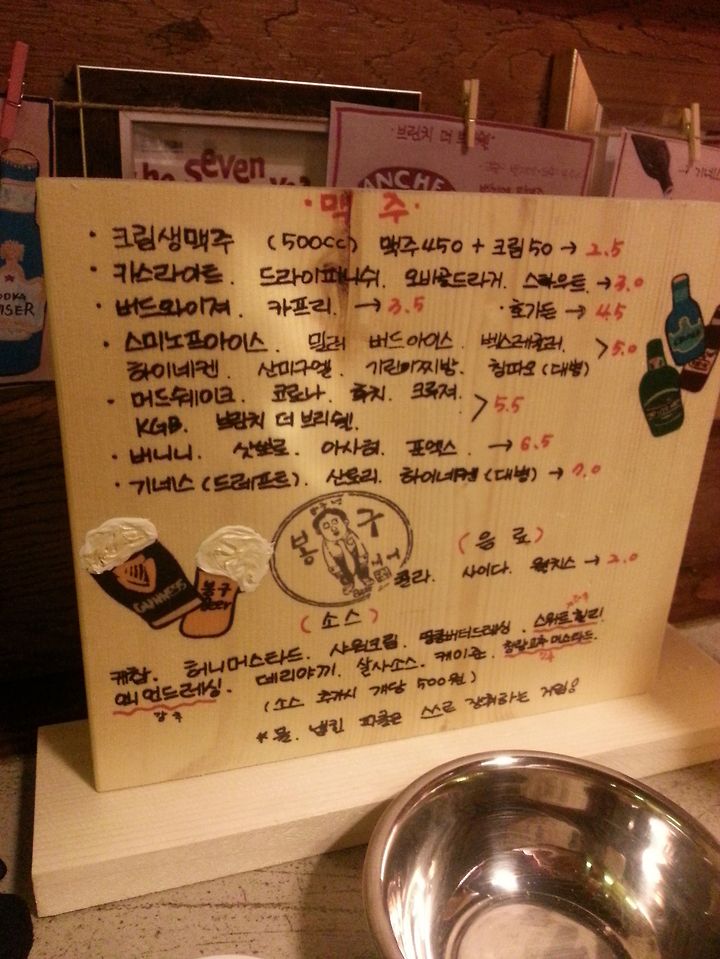 The Seven
브런치 더
ANCHE
·맥 주·
· 크림생맥주 (500cc) 맥주450 + 크림50 → 2.5
· 키스라이트. 드라이피니쉬. 오비골드라거. 스타우트. → 3.0
· 버드와이져. 카프리. → 3.5 · 호가든 → 4.5
· 스미노프아이스. 밀러 버드아이스. 벡스
하이네켄. 산미구엘. 기린이찌방. 칭따오(대병) > 5.0
· 머드쉐이크. 코로나. 후치. 크루져.
KGB. 브런치 더 브리쉘. > 5.5
· 버니니. 삿뽀로. 아사히. 포엑스. → 6.5
· 기네스(드래프트). 산토리. 하이네켄(대병) → 7.0
봉 구
(음 료)
콜라. 사이다. 웰치스 → 2.0
GUINNESS
봉구
Beer
(소스)
케찹. 허니머스타드. 샤워크림. 땅콩버터드레싱. 스위트칠리
어니언드레싱. 데리야끼. 살사소스. 케이준. 청량고추 머스타드.
강추
(소스 추가시 개당 500원)
*물. 냅킨 피클은 스스로 쟁취하는 거임!